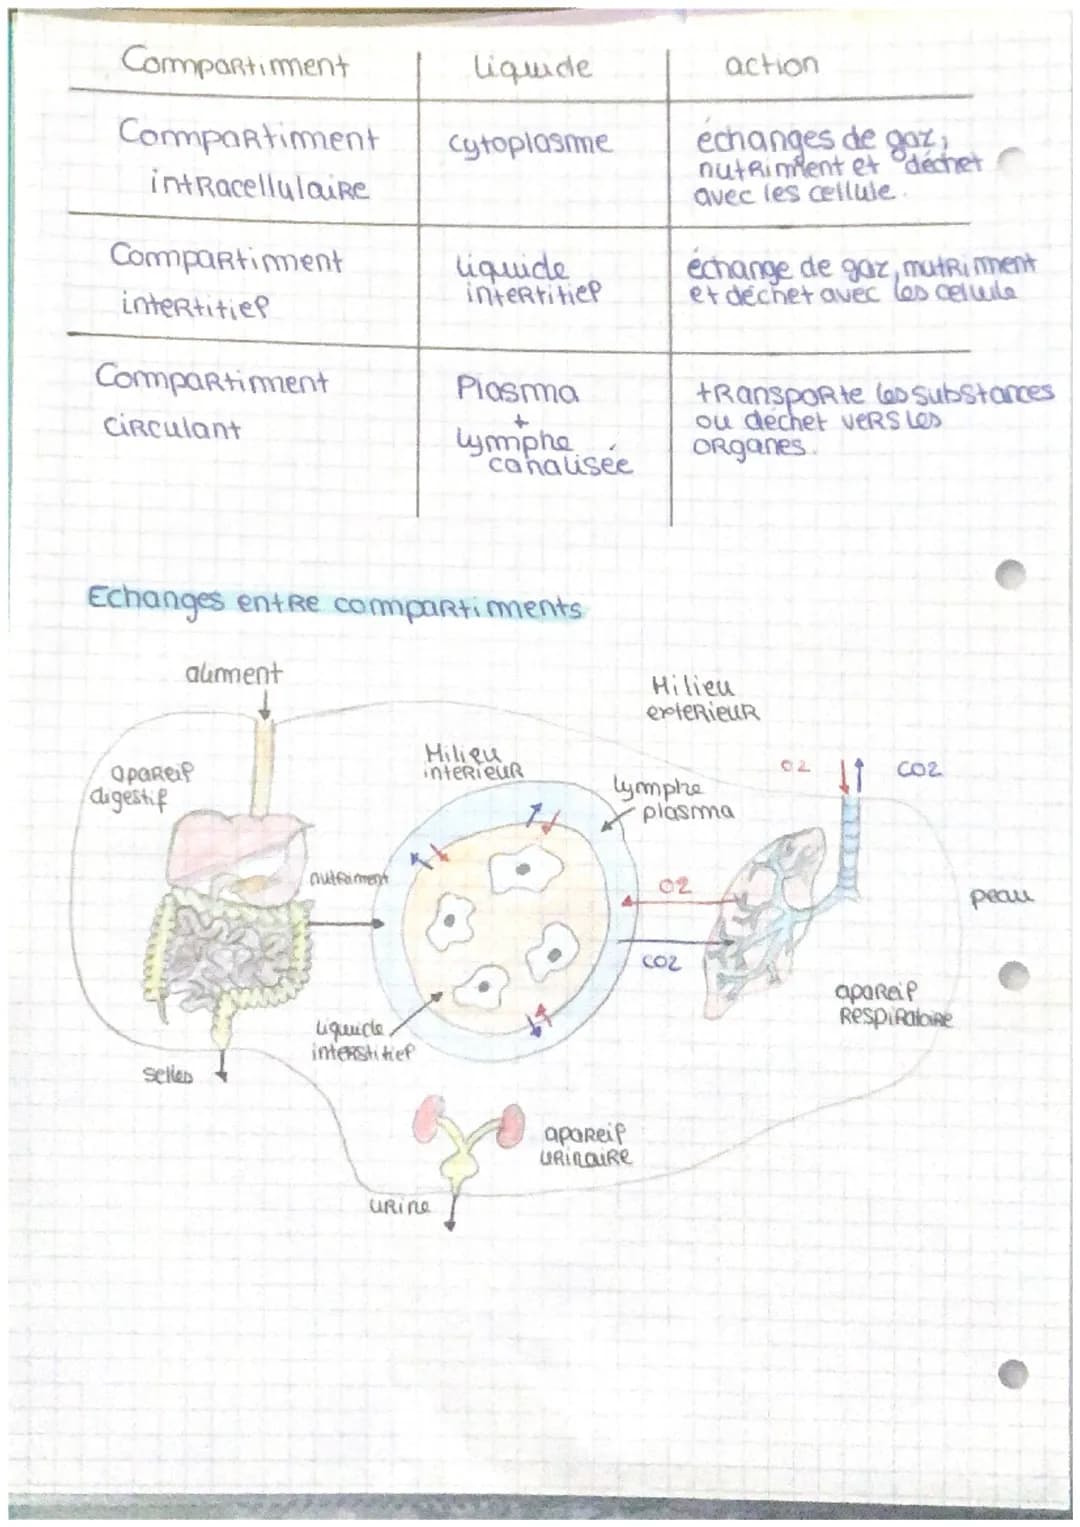 Compartiment
liquide
action
Compartiment
intracellulaire
cytoplasme
échanges de gaz,
nutriment et déchet
avec les cellule.
Compartiment
intertitiel
liquide
intertitiel
échange de gaz, nutriment
et déchet avec les cellule
Compartiment
circulant
Plasma
+
lymphe
canalisée
transporte les substances
ou déchet vers les
organes.
Echanges entre compartiments
aliment
Milieu
exterieur
apareil
digestif
Milieu
interieur
lymphe
plasma
O2
CO2
nutriment
O2
CO2
peau
apareil
respiratoire
liquide
interstitiel
selles
apareil
urinaire
urine